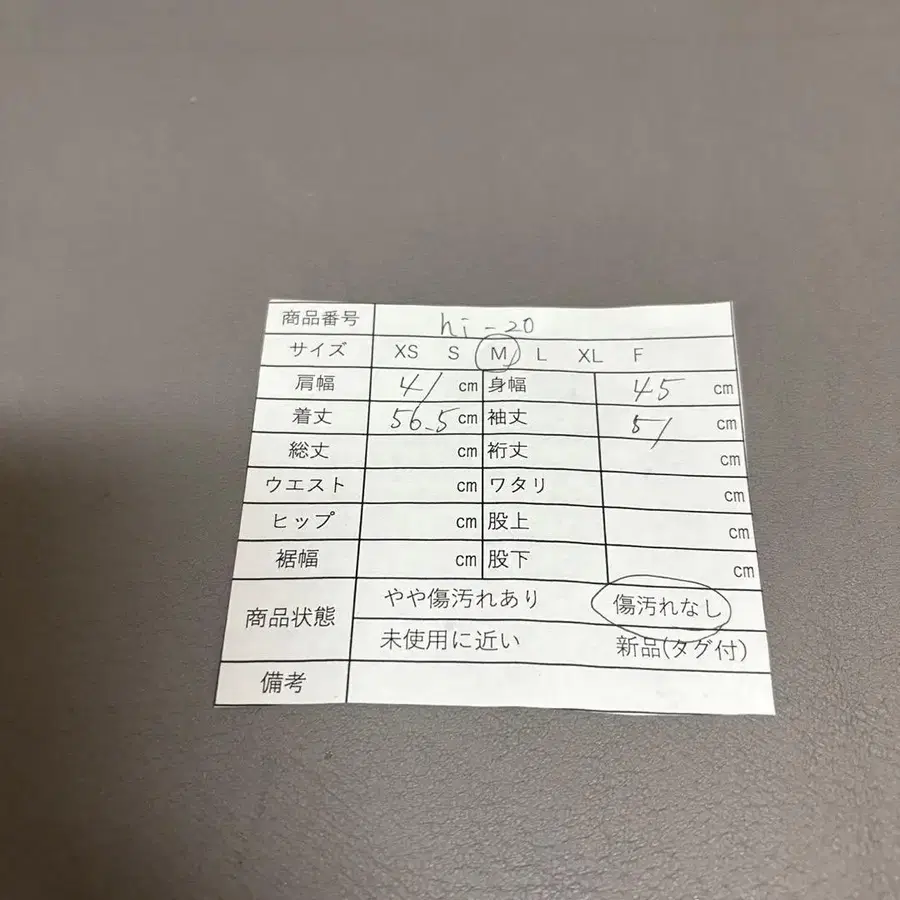 商品番号 hi-20
サイズ XS S M L XL F
肩幅 41 cm 身幅 45 cm
着丈 56.5 cm 袖丈 51 cm
総丈 cm 裄丈 cm
ウエスト cm ワタリ cm
ヒップ cm 股上 cm
裾幅 cm 股下 cm
商品状態 やや傷汚れあり 傷汚れなし
未使用に近い 新品(タグ付)
備考